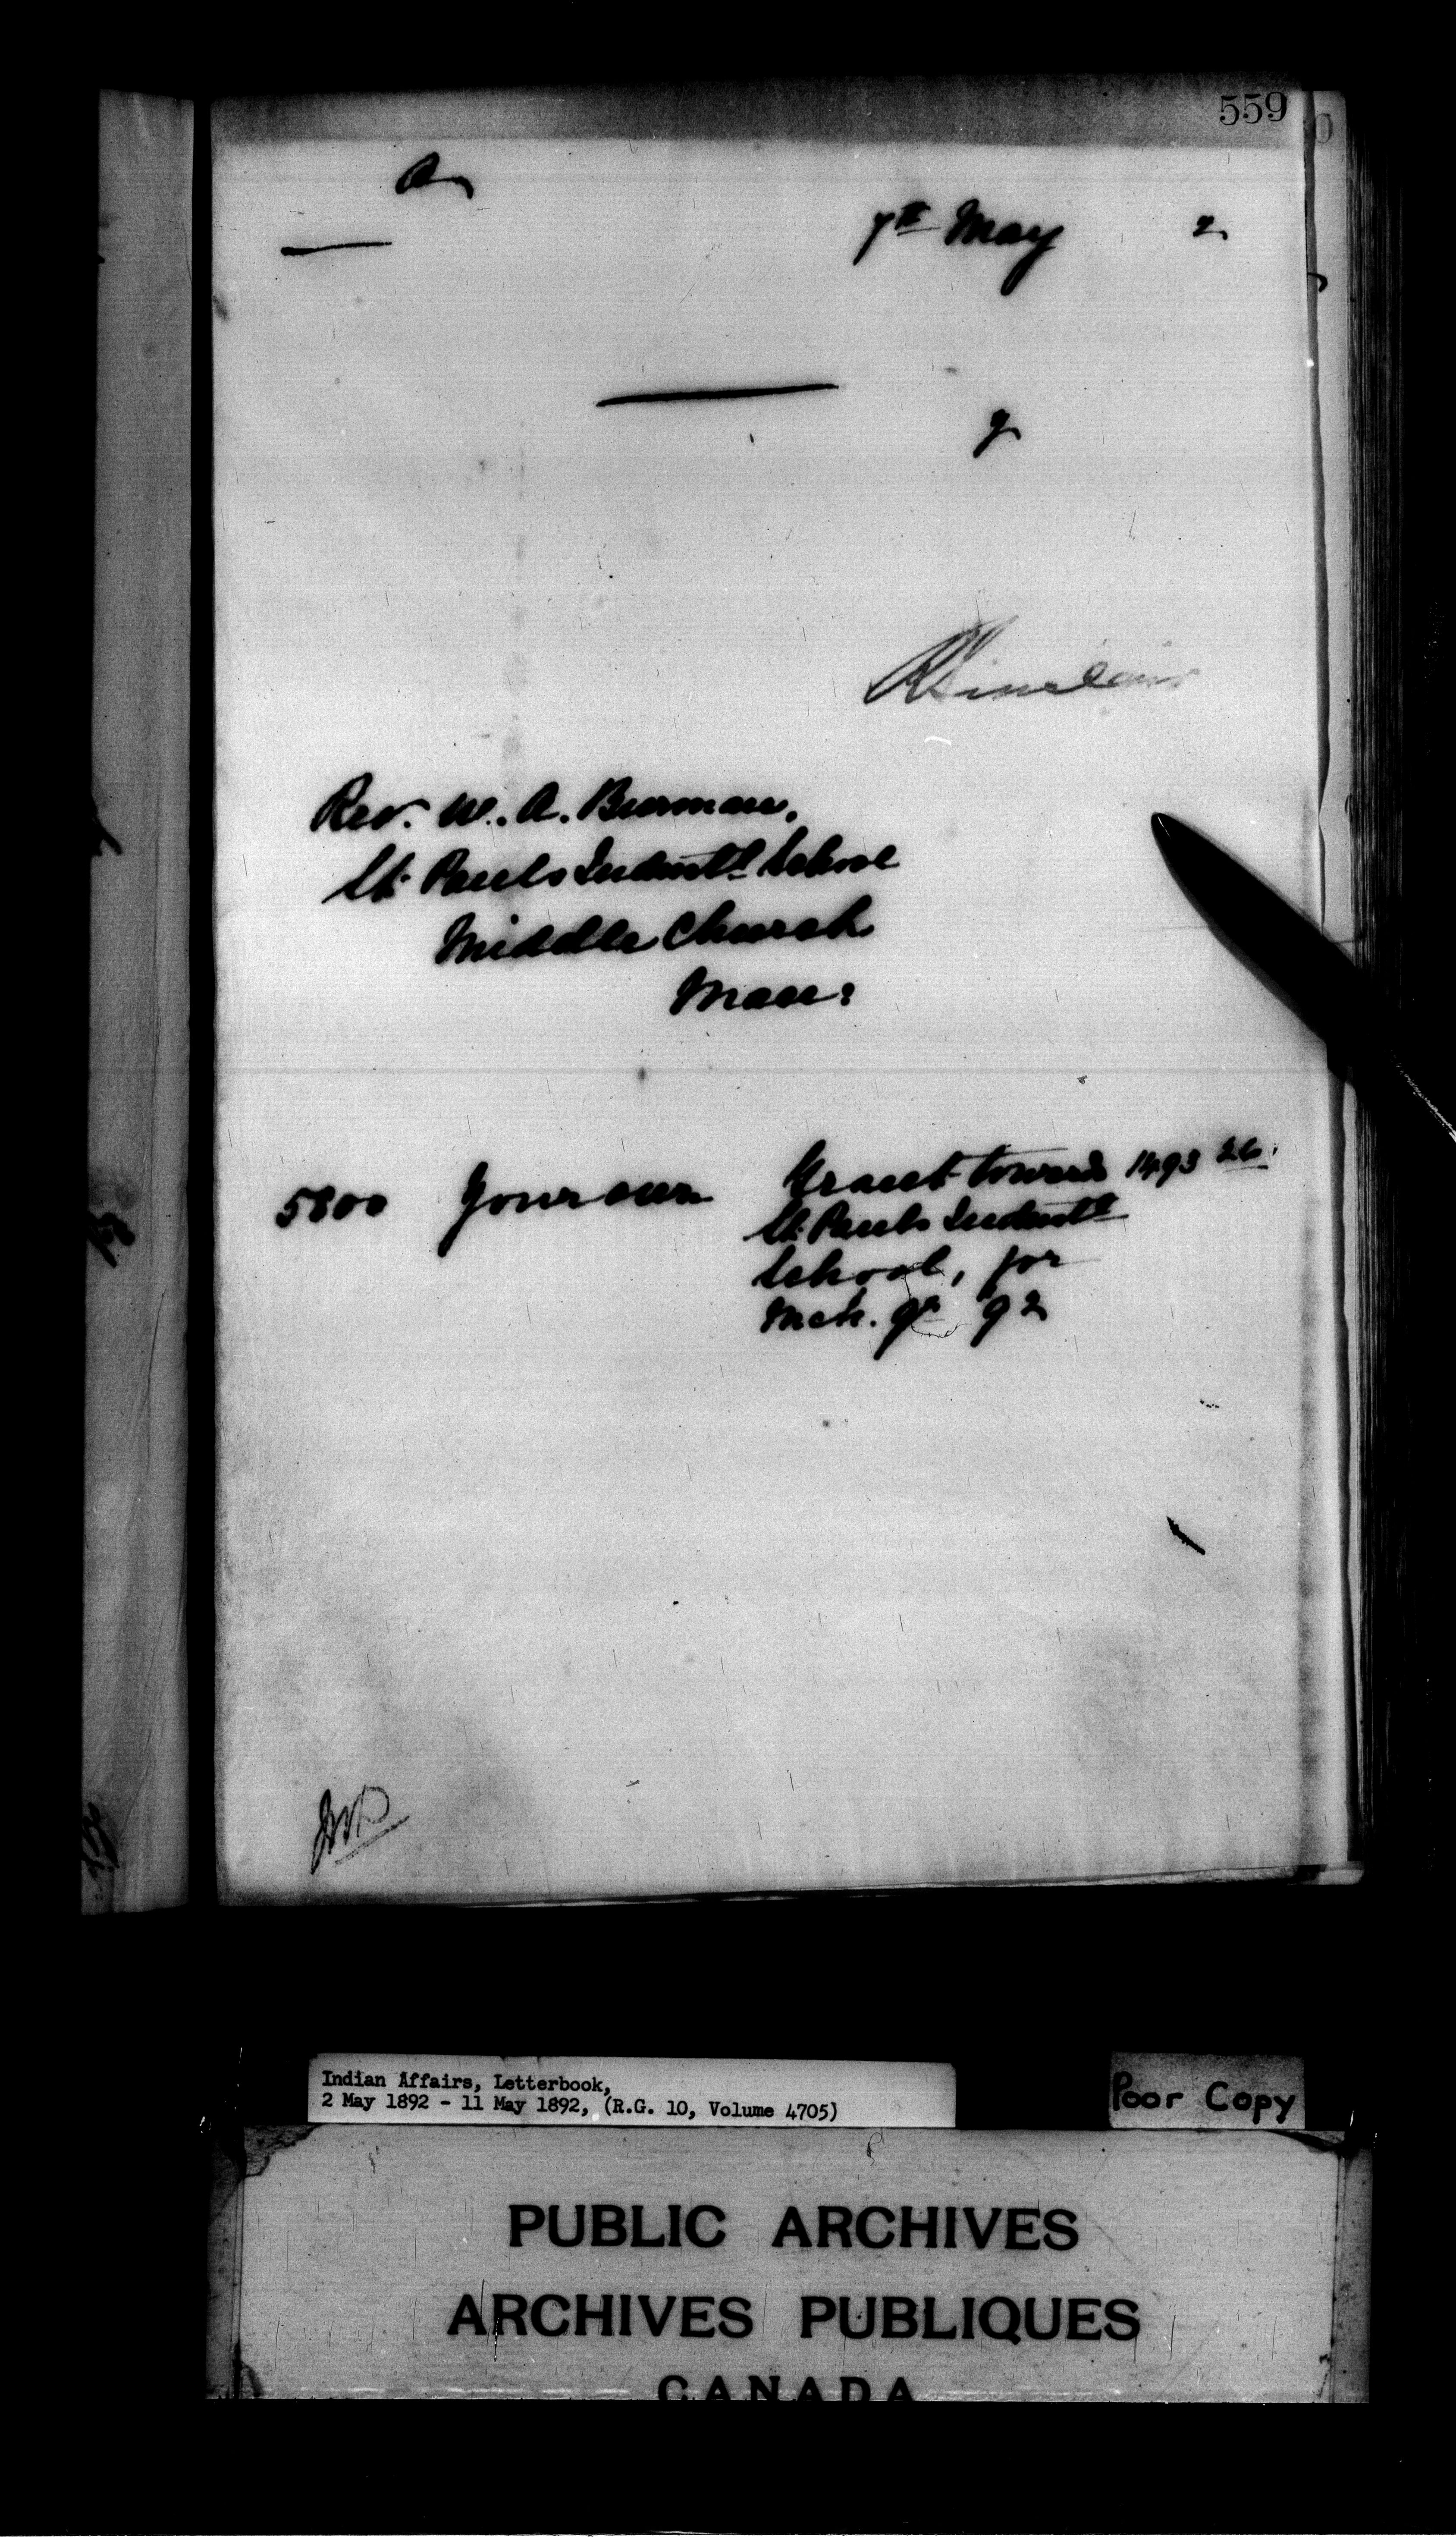 559
A
7th May 2
y
RSinclair
Rev. W. A. Burman,
St. Pauls Industl School
Middle Church
Man:
5800 Yourown Grant toward 1493 26.
St. Pauls Industl
School, for
Mch. qr 92
Indian Affairs, Letterbook,
2 May 1892 - 11 May 1892, (R.G. 10, Volume 4705)
Poor Copy
PUBLIC ARCHIVES
ARCHIVES PUBLIQUES
CANADA